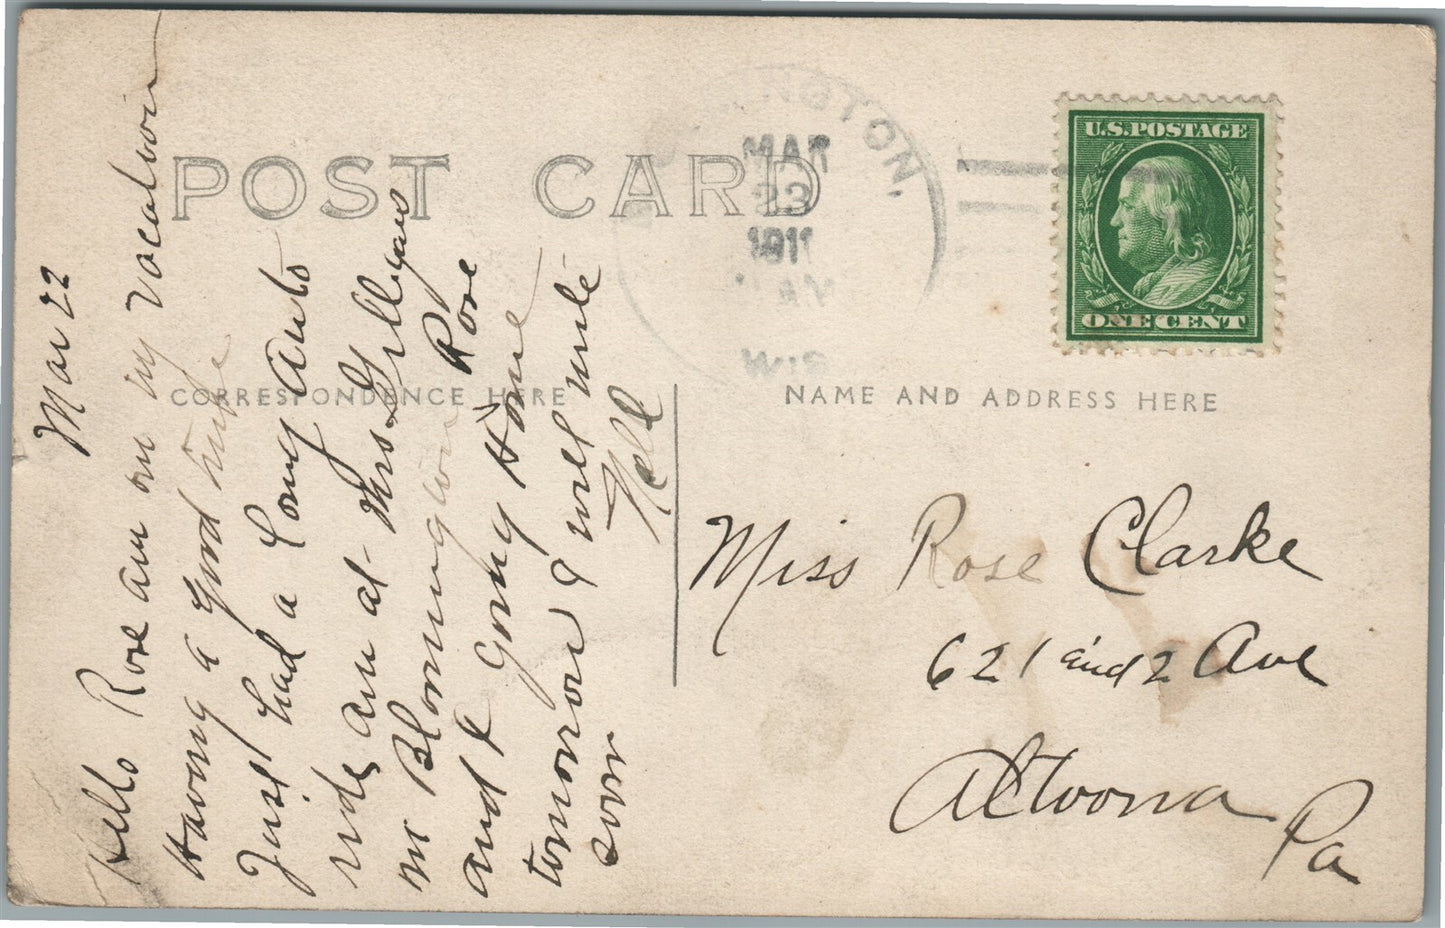 POST CARD
CORRESPONDENCE HERE
NAME AND ADDRESS HERE
U.S. POSTAGE
ONE CENT
NGTON,
MAR
23
1911
WIS
Mar 22
Hello Rose am on my vocation
Having a good time
Just had a long Auto
ride am at Mrs
in Bloomington Rose
and I going Home
tomorrow & will write
soon Nell
Miss Rose Clarke
621 and 2 Ave
Altoona
Pa